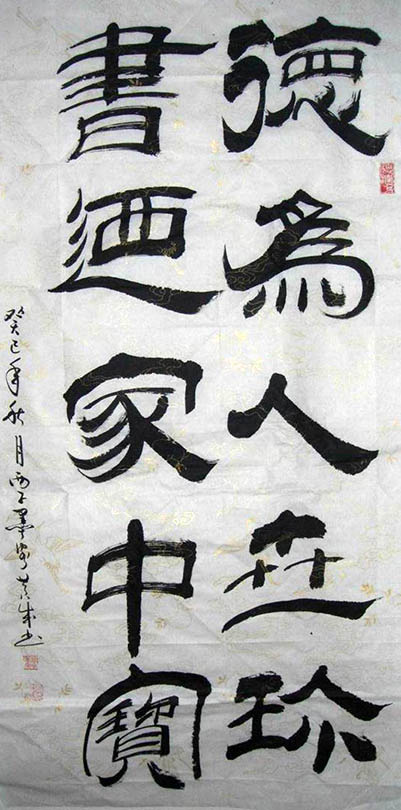 德為人世珍
書迺家中寶
癸巳年秋月